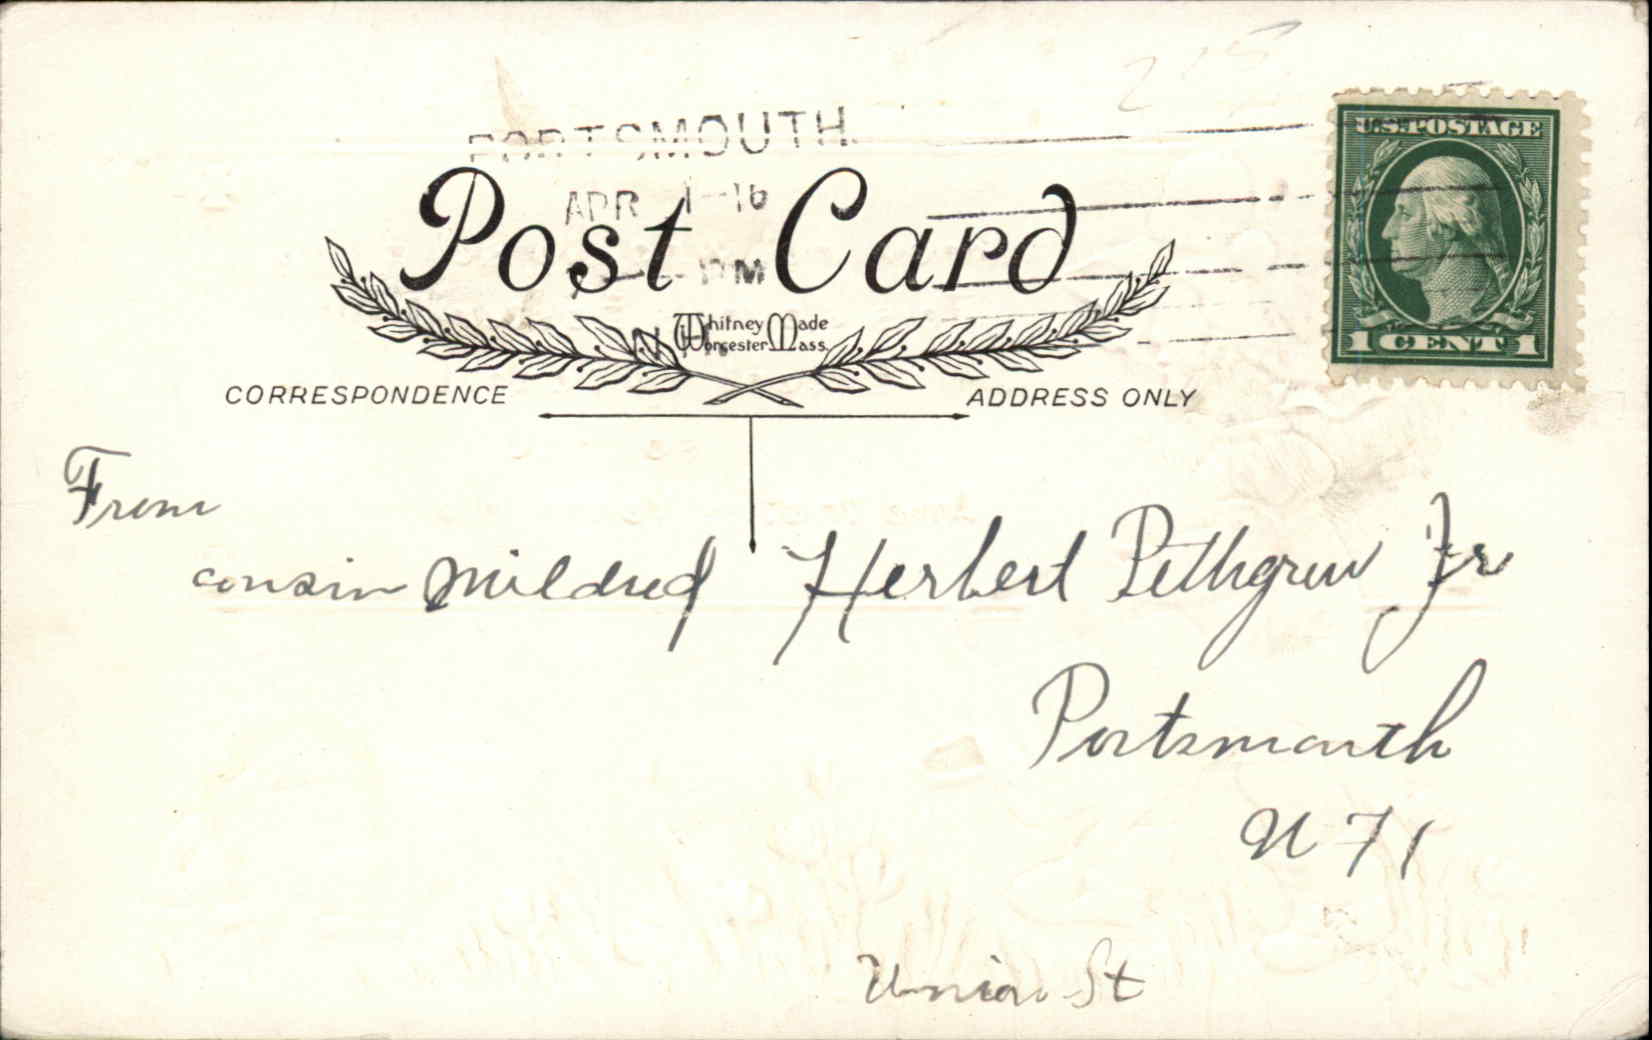 215
PORTSMOUTH
APR 1-16
PM
N
U.S. POSTAGE
1 CENT 1
Post Card
Whitney Made
Worcester Mass.
CORRESPONDENCE
ADDRESS ONLY
From
cousin Mildred
Herbert Pethgrew Jr
Portsmouth
N H
Union St